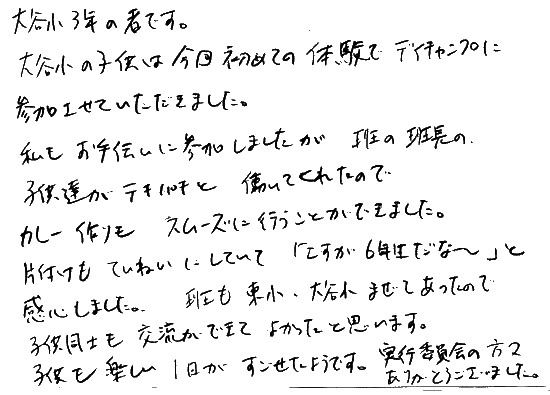 大谷小3年の者です。
大谷小の子供は今回初めての体験でデイキャンプに
参加させていただきました。
私もお手伝いに参加しましたが 班の班長の
子供達がテキパキと 働いてくれたので
カレー作りも スムーズに行うことができました。
片付けもていねいにしていて 「さすが6年生だな〜」と
感心しました。 班も東小、大谷小まぜてあったので
子供同士も交流ができて よかったと思います。
子供も楽しい1日がすごせたようです。 実行委員会の方々
ありがとうございました。